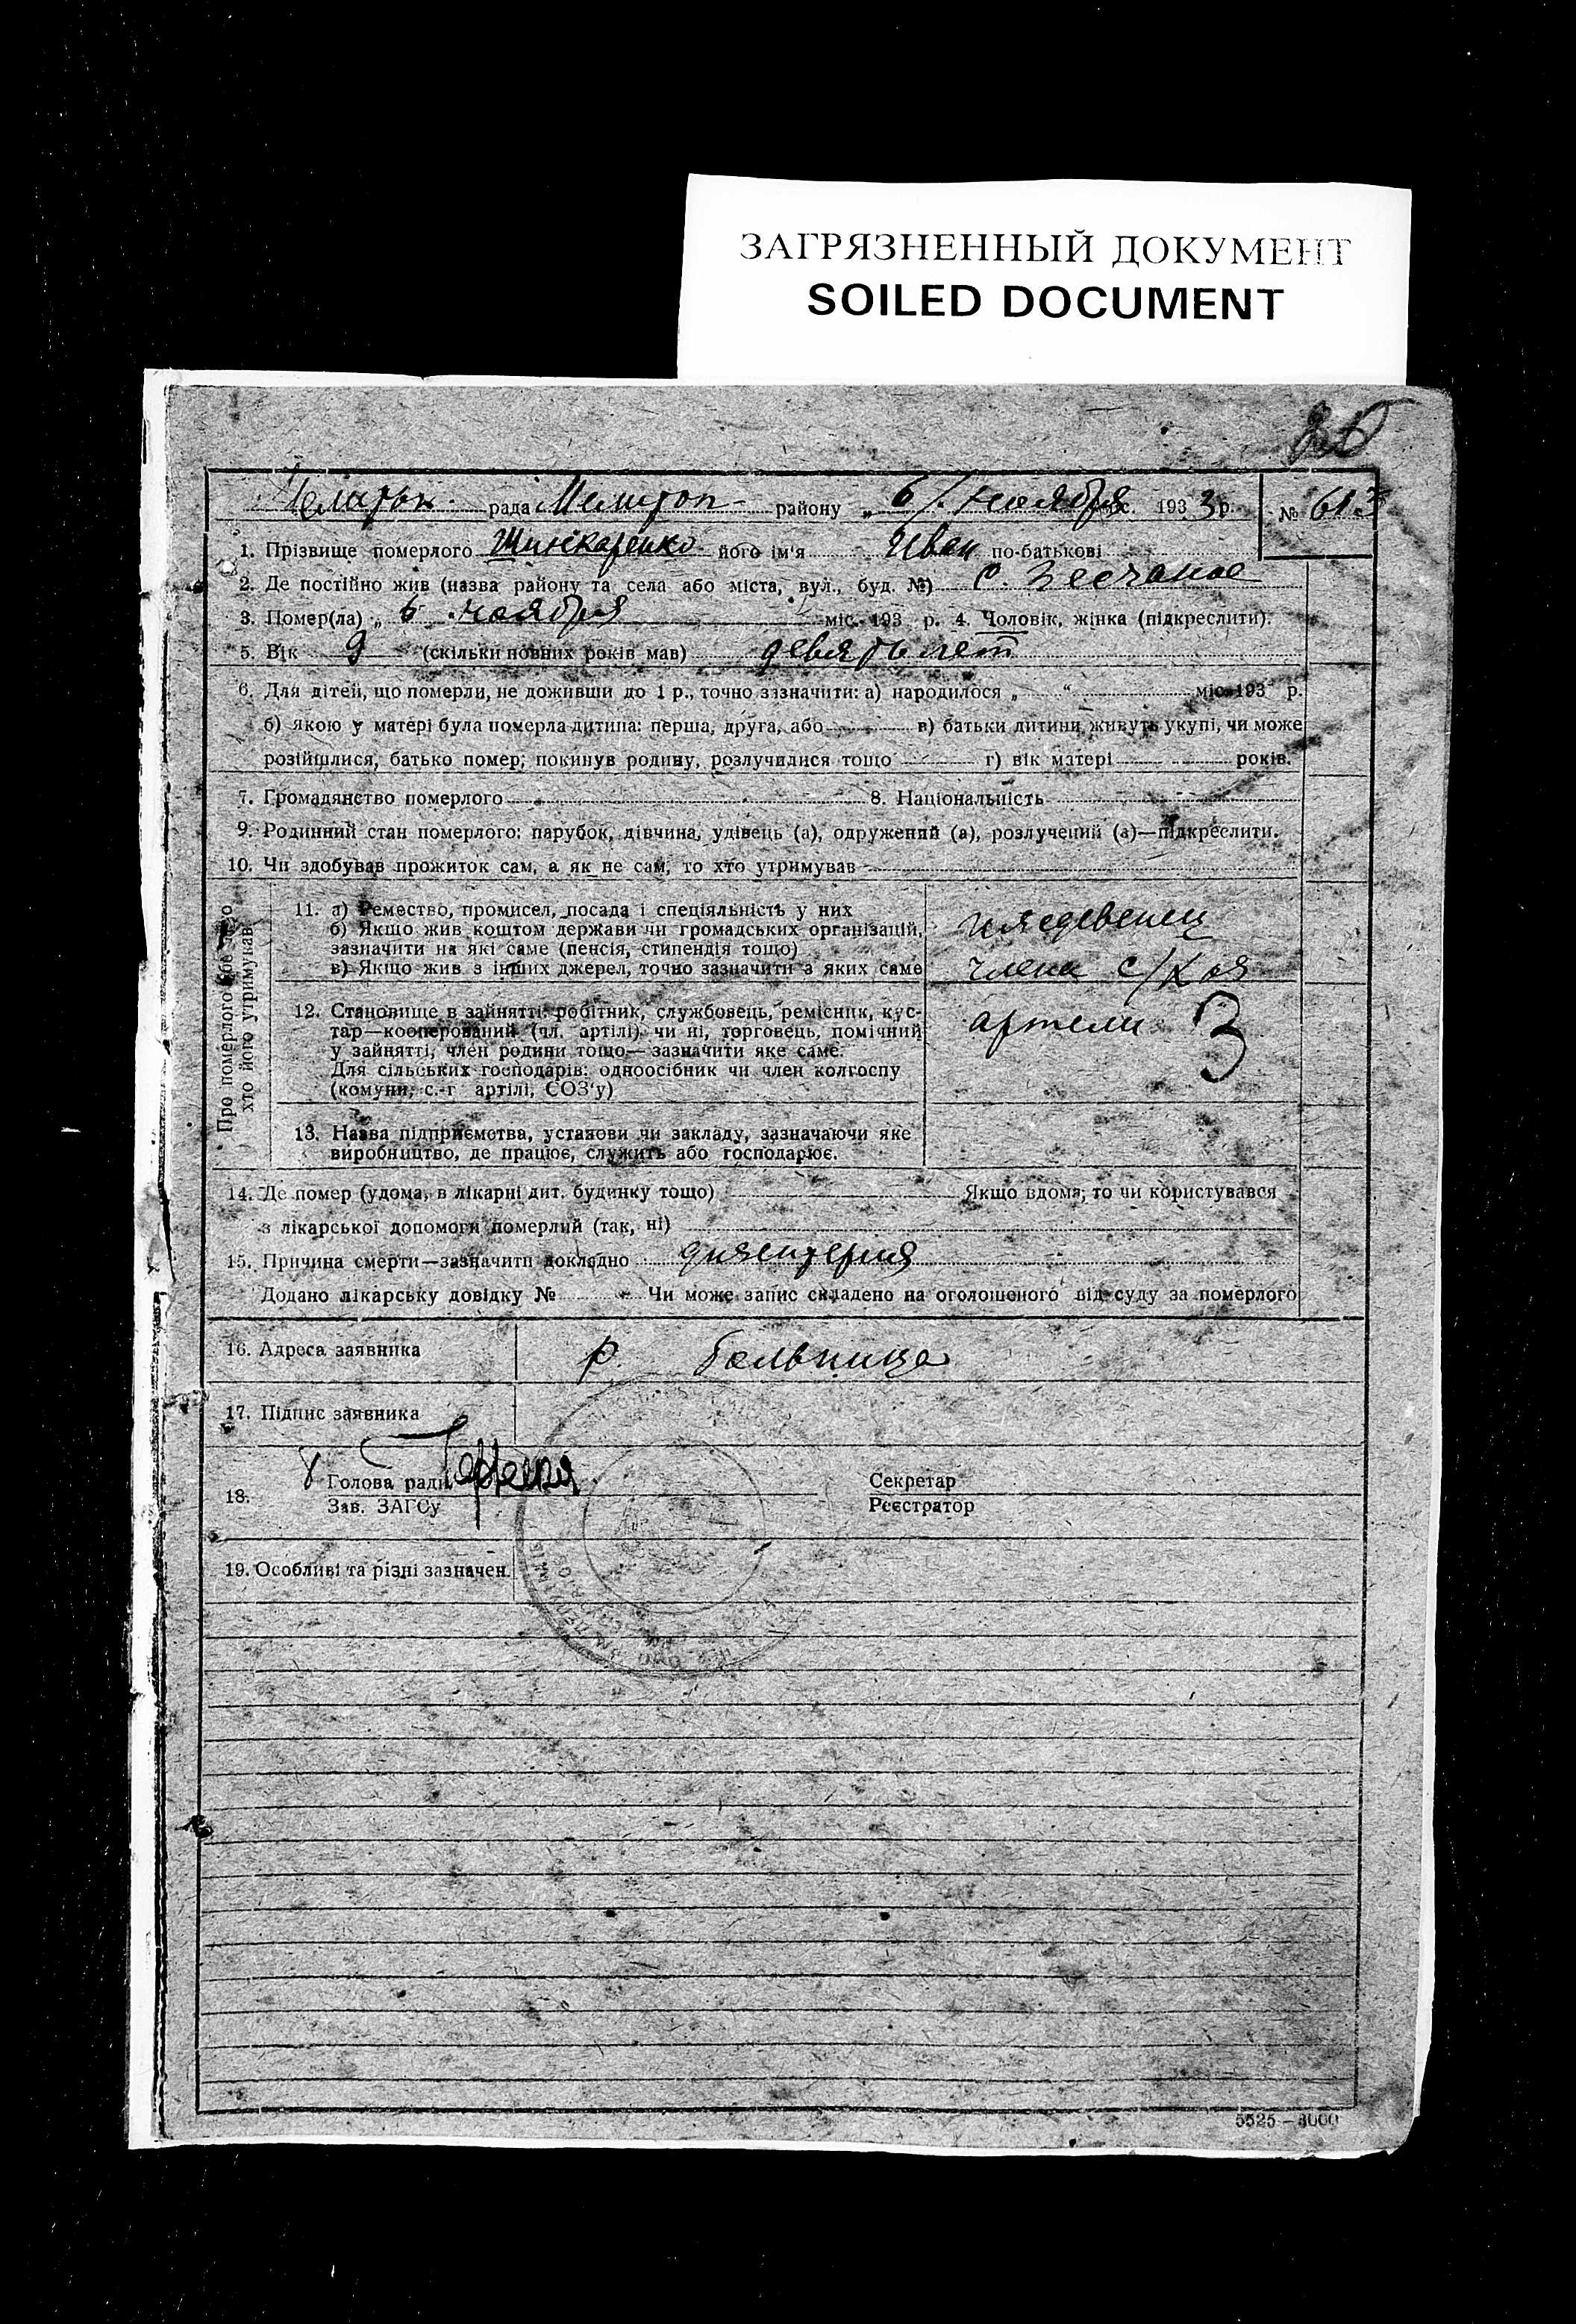 ЗАГРЯЗНЕННЫЙ ДОКУМЕНТ
SOILED DOCUMENT
рада Мелитоп району „ 6 / ноября міс. 193 3 р. № 613
1. Прізвище померлого Шинкаренко його ім'я Иван по-батькові
2. Де постійно жив (назва району та села або міста, вул., буд. №) с.
3. Помер(ла) „ 6 ноября міс. 193 р. 4. Чоловік, жінка (підкреслити).
5. Вік 9 (скільки повних років мав) девять лет
6. Для дітей, що померли, не доживши до 1 р., точно зазначити: а) народилося „ “ міс. 193 р.
б) якою у матері була померла дитина: перша, друга, або в) батьки дитини живуть укупі, чи може
розійшлися, батько помер; покинув родину, розлучилися тощо г) вік матері років.
7. Громадянство померлого 8. Національність
9. Родинний стан померлого: парубок, дівчина, удівець (а), одружений (а), розлучений (а)—підкреслити.
10. Чи здобував прожиток сам, а як не сам, то хто утримував
Про померлого або того
хто його утримував
11. а) Ремество, промисел, посада і спеціяльність у них
б) Якщо жив коштом держави чи громадських організацій,
зазначити на які саме (пенсія, стипендія тощо)
в) Якщо жив з інших джерел, точно зазначити з яких саме
иждевенец
члена с/х-ая
12. Становище в зайнятті: робітник, службовець, ремісник, кус-
тар—кооперований (чл. артілі) чи ні, торговець, помічний
у зайнятті, член родини тощо—зазначити яке саме.
Для сільських господарів: одноосібник чи член колгоспу
(комуни, с.-г артілі, СОЗ'у)
артели 3
13. Назва підприємства, установи чи закладу, зазначаючи яке
виробництво, де працює, служить або господарює.
14. Де помер (удома, в лікарні дит. будинку тощо) Якщо вдома, то чи користувався
з лікарської допомоги померлий (так, ні)
15. Причина смерти—зазначити докладно дизентерия
Додано лікарську довідку № Чи може запис складено на оголошеного від суду за померлого
16. Адреса заявника р. больница
17. Підпис заявника
18. Голова ради Секретар
Зав. ЗАГСу Реєстратор
19. Особливі та різні зазначен.
5525—3000